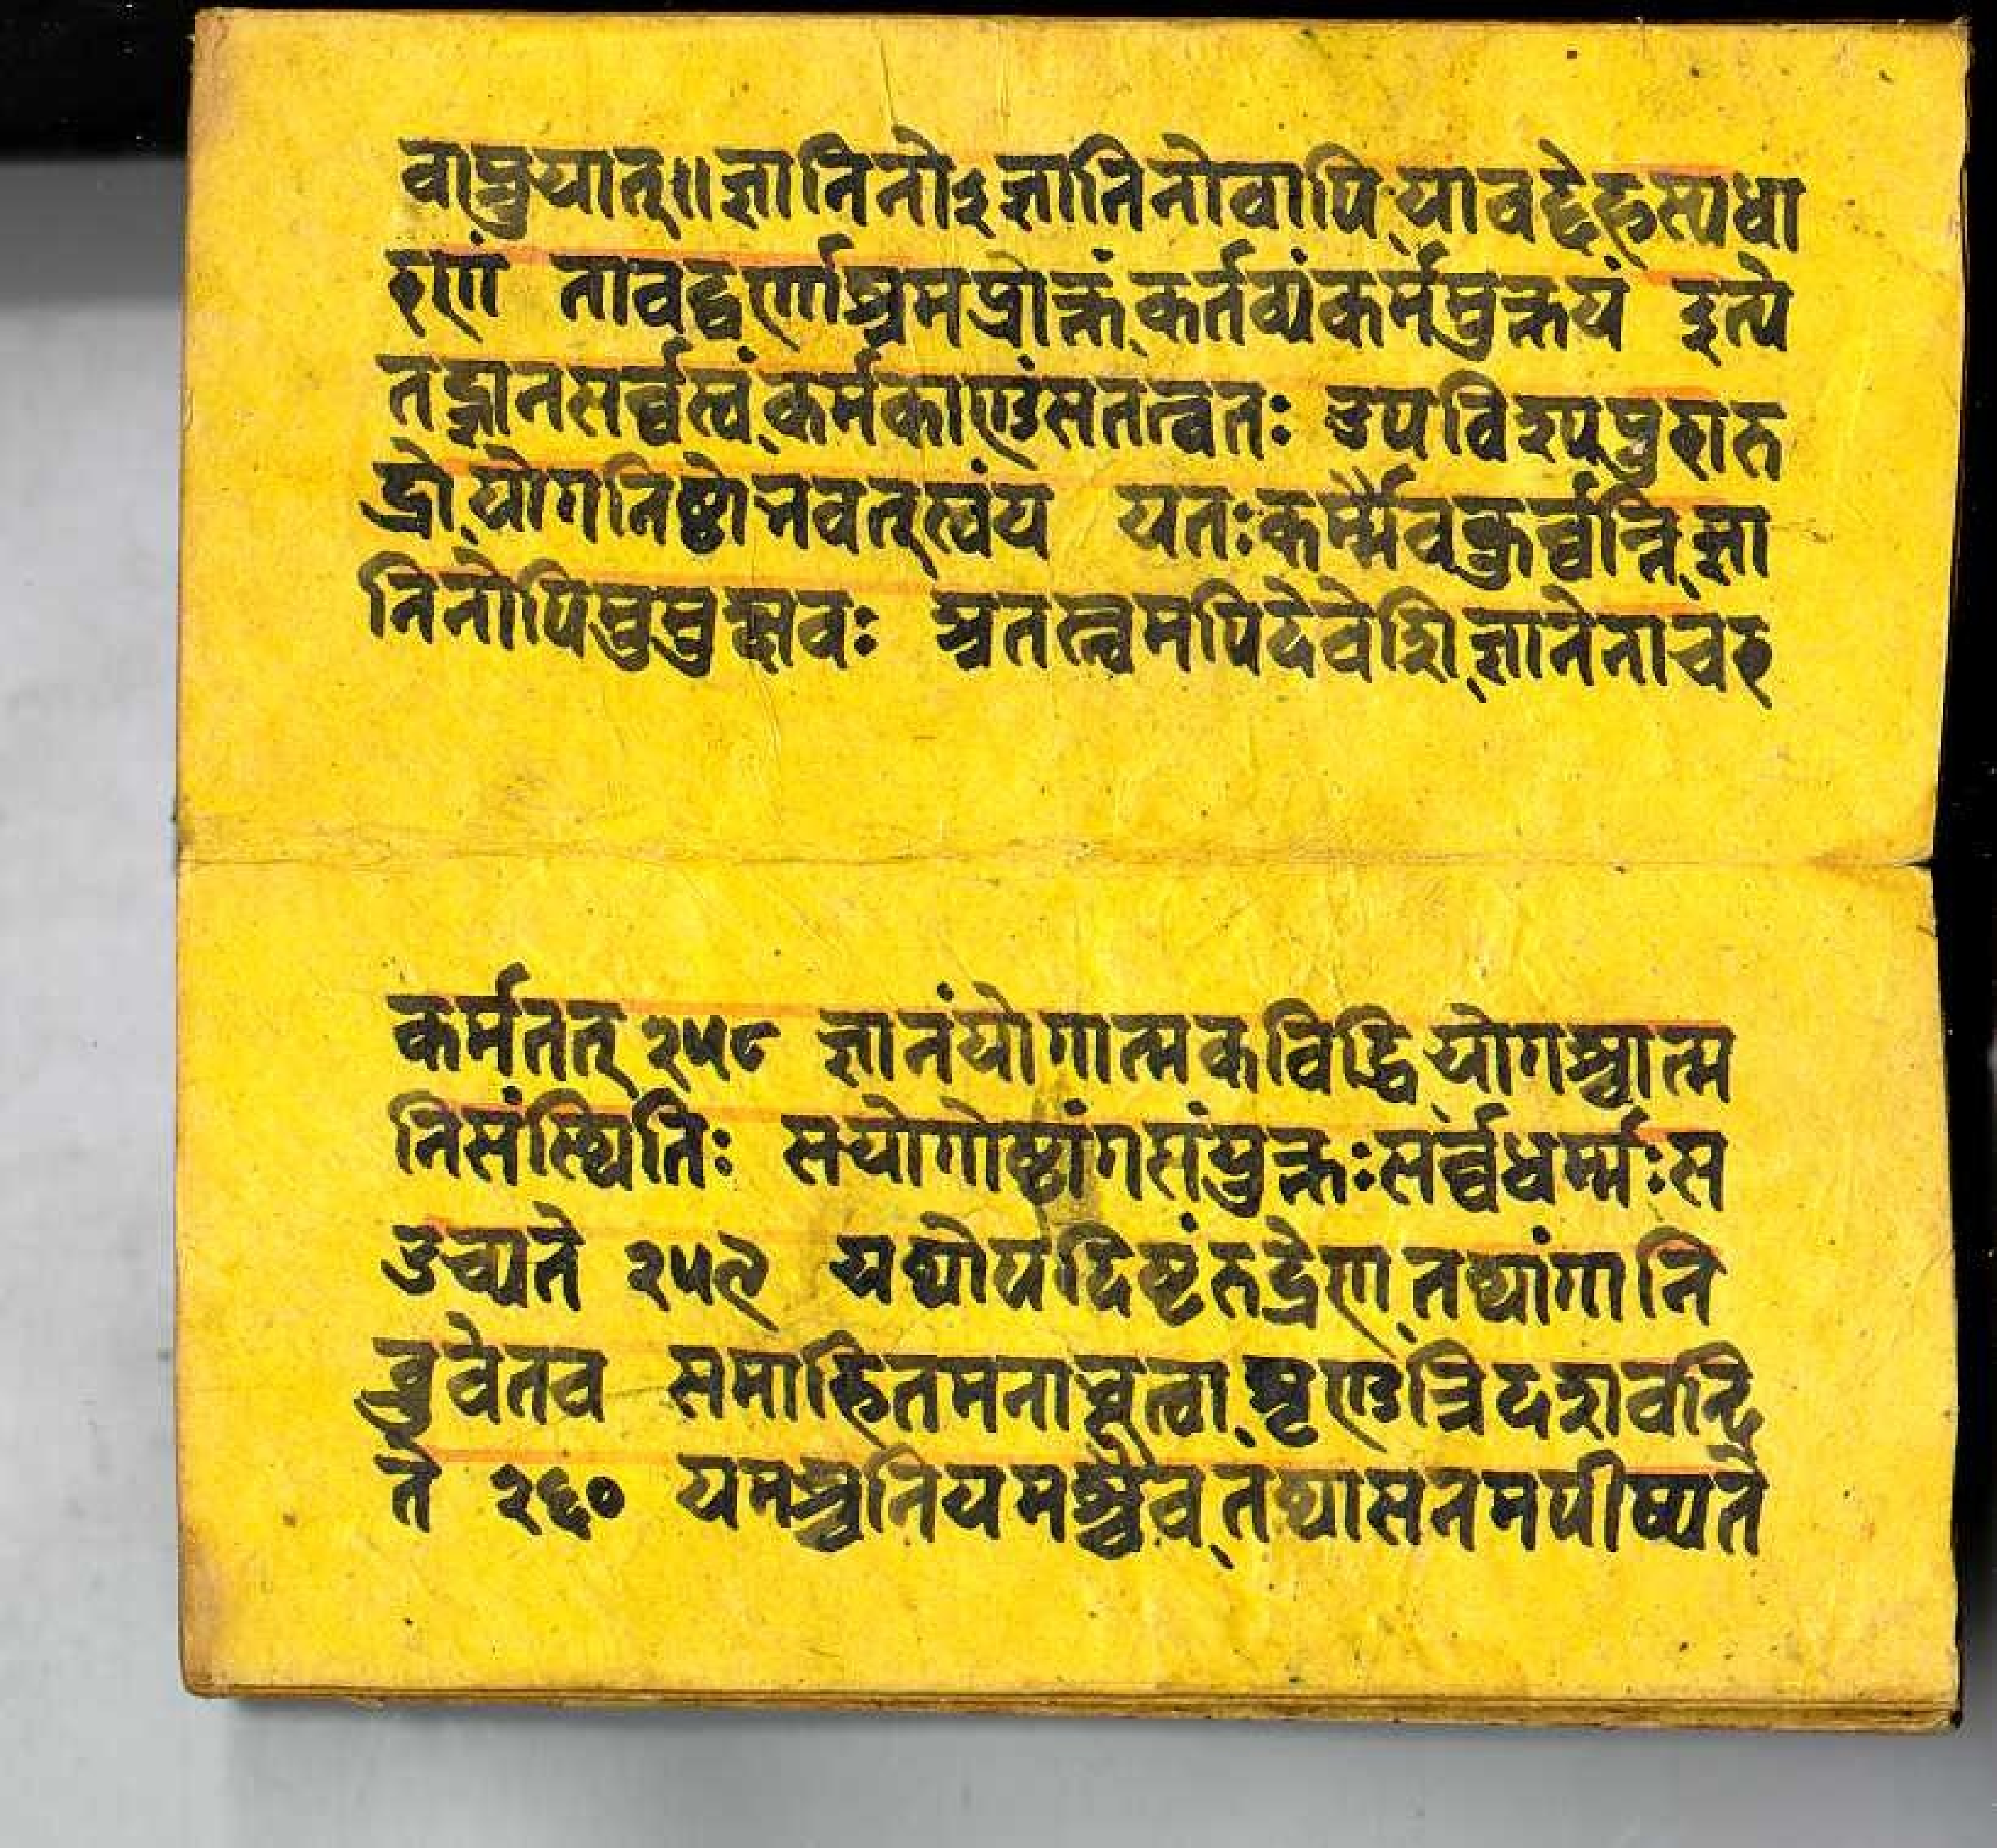 वाप्नुयात्॥ज्ञानिनोऽज्ञानिनोवापि यावद्देहस्यधा
रणं तावद्वर्णाश्रमप्रोक्तं कर्तव्यंकर्ममुक्तयं इत्ये
तद्ज्ञानसर्व्वस्वं कर्मकाण्डंसतत्वतः उपविश्य पुरारु
द्रो योगनिष्ठोनवत् त्वंय यतःकर्म्मैव कुर्व्वन्ति ज्ञा
निनोपिमुमुक्षवः अतत्त्वमपिदेवेशि ज्ञानेनाचर
कर्मतत् २५८ ज्ञानंयोगात्मकविद्धि योगश्चात्म
निसंस्थितिः सयोगोष्टांगसंयुक्तःसर्व्वधर्म्मःस
उच्यते २५९ यद्योपदिष्टंरुद्रेण तद्यांगानि
ब्रुवेतव समाहितमनाभूत्वा शृणु त्रिदशवन्दि
ते २६० यमश्चनियमश्चैव तथासनमपीष्यते